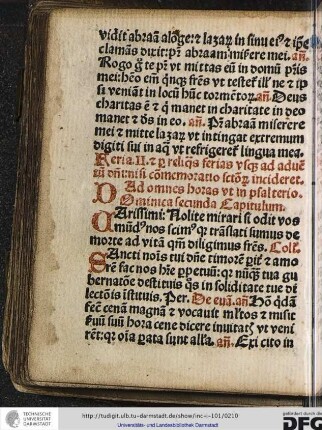 vidit abraã a lõge: ⁊ lazaꝝ in sinu eiꝰ ⁊ ip̃e
clamãs dixit: pr̃ abraam miserere mei. añ.
Rogo g̃ te pr̃ vt mittas eũ in domũ pr̃is
mei: hẽo em̃ qnqꝫ fr̃es vt testet̃ ill' ne ⁊ ip̃
si veniãt in locũ hũc tormẽtoꝝ. añ. Deus
charitas ẽ ⁊ q̃ manet in charitate in deo
manet ⁊ dꝰs in eo. añ. Pr̃ abraã miserere
mei ⁊ mitte lazaꝝ vt intingat extremum
digiti sui in aqã vt refrigeret̃ lingua mea.
Feria .II. ⁊ ꝑ reliq̃s ferias vsqꝫ ad aduẽ
tũ dñi nisi cõmemoratio sctõꝝ incideret.
Ad omnes horas vt in psalterio.
Dominica secunda Capitulum.
CArissimi: Nolite mirari si odit vos
mũdꝰ nos scimꝰ qꝛ trãslati sumus de
morte ad vitã qm̃ diligimus fr̃es. Coll'.
SAncti noĩs tui dñe timorẽ ꝑit̃ ⁊ amo
rẽ fac nos hr̃e ꝑpetuũ: qꝛ nũqꝫ tua gu
bernatõe destituis q̃s in soliditate tue di
lectõis ĩstituis. Per. De euã. añ. Hõ qdã
fec̃ cenã magnã ⁊ vocauit m̃ltos ⁊ misit
f̃uũ suũ hora cene dicere inuitat̃ vt veni
rẽt: qꝛ oĩa ꝑata sunt all'a. añ. Exi cito in
TECHNISCHE
UNIVERSITÄT
DARMSTADT
http://tudigit.ulb.tu-darmstadt.de/show/inc-i-101/0210
Universitäts- und Landesbibliothek Darmstadt
gefördert durch die
DFG